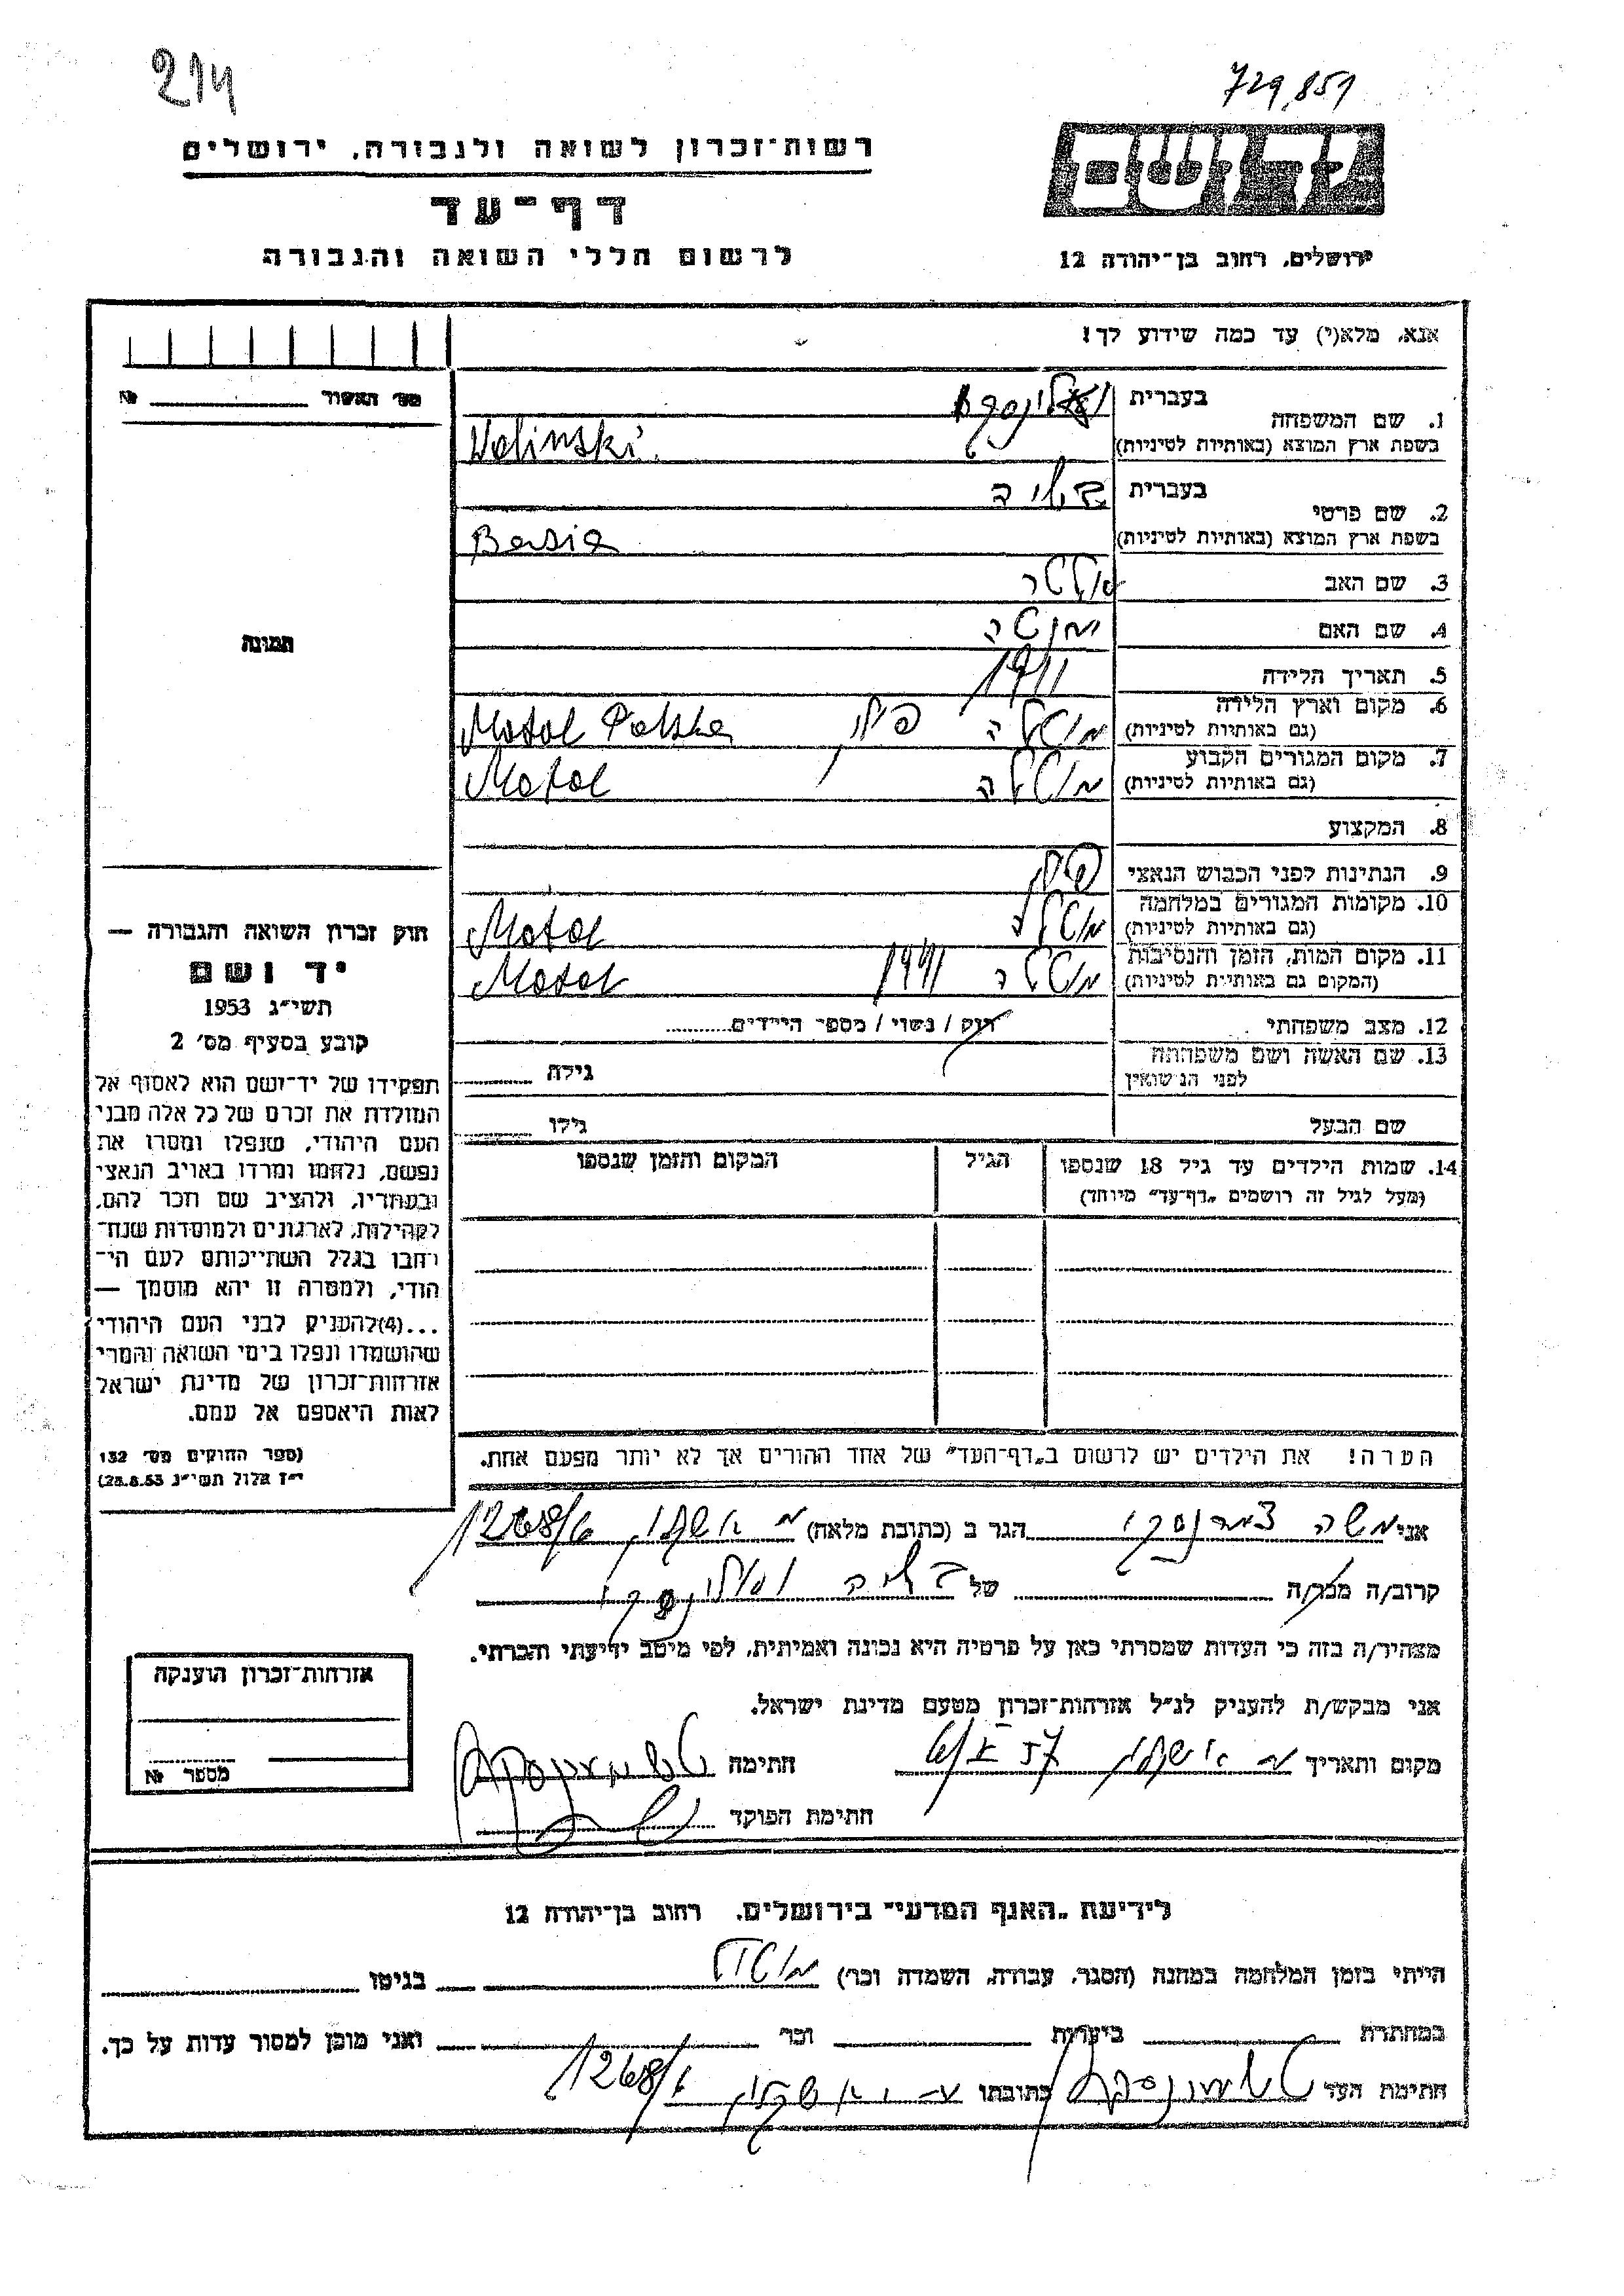 214
729,851
רשות־זכרון לשואה ולגבורה, ירושלים
דף־עד
לרשום חללי השואה והגבורה
ידושם
ירושלים, רחוב בן־יהודה 12
אנא, מלא(י) עד כמה שידוע לך!
מס׳ האשור №
תמונה
1. שם המשפחה בעברית
בשפת ארץ המוצא (באותיות לטיניות) Wolinski
2. שם פרטי בעברית
בשפת ארץ המוצא (באותיות לטיניות) Basia
3. שם האב אלטר
4. שם האם
5. תאריך הלידה 1911
6. מקום וארץ הלידה
(גם באותיות לטיניות) מוטלה פולין Motol Polska
7. מקום המגורים הקבוע
(גם באותיות לטיניות) מוטלה Motol
8. המקצוע
9. הנתינות לפני הכבוש הנאצי
10. מקומות המגורים במלחמה
(גם באותיות לטיניות) מוטלה Motol
11. מקום המות, הזמן והנסיבות
(המקום גם באותיות לטיניות) מוטלה 1941 Motol
12. מצב משפחתי רווק / נשוי / מספר הילדים
13. שם האשה ושם משפחתה
לפני הנישואין גילה
שם הבעל גילו
14. שמות הילדים עד גיל 18 שנספו הגיל המקום והזמן שנספו
(מעל לגיל זה רושמים „דף־עד״ מיוחד)
הערה! את הילדים יש לרשום ב„דף־העד״ של אחד ההורים אך לא יותר מפעם אחת.
חוק זכרון השואה והגבורה —
יד ושם
תשי״ג 1953
קובע בסעיף מס׳ 2
תפקידו של יד־ושם הוא לאסוף אל
המולדת את זכרם של כל אלה מבני
העם היהודי, שנפלו ומסרו את
נפשם, נלחמו ומרדו באויב הנאצי
ובעוזריו, ולהציב שם וזכר להם,
לקהילות, לארגונים ולמוסדות שנח־
רבו בגלל השתייכותם לעם הי־
הודי, ולמטרה זו יהא מוסמך —
...(4)להעניק לבני העם היהודי
שהושמדו ונפלו בימי השואה והמרי
אזרחות־זכרון של מדינת ישראל
לאות היאספם אל עמם.
(ספר החוקים מס׳ 132
י״ז אלול תשי״ג 28.8.53)
אני משה הגר ב (כתובת מלאה) 1268/6
קרוב/ה מכר/ה של בשיה וואלינסקי
מצהיר/ה בזה כי העדות שמסרתי כאן על פרטיה היא נכונה ואמיתית, לפי מיטב ידיעתי והכרתי.
אני מבקש/ת להעניק לנ״ל אזרחות־זכרון מטעם מדינת ישראל.
מקום ותאריך חתימה
חתימת הפוקד
אזרחות־זכרון הוענקה
מספר №
לידיעת „האגף המדעי״ בירושלים, רחוב בן־יהודה 12
הייתי בזמן המלחמה במחנה (הסגר, עבודה, השמדה וכו׳) בגיטו
במחתרת ביערות וכו׳ ואני מוכן למסור עדות על כך.
חתימת העד כתובתו 1268/6